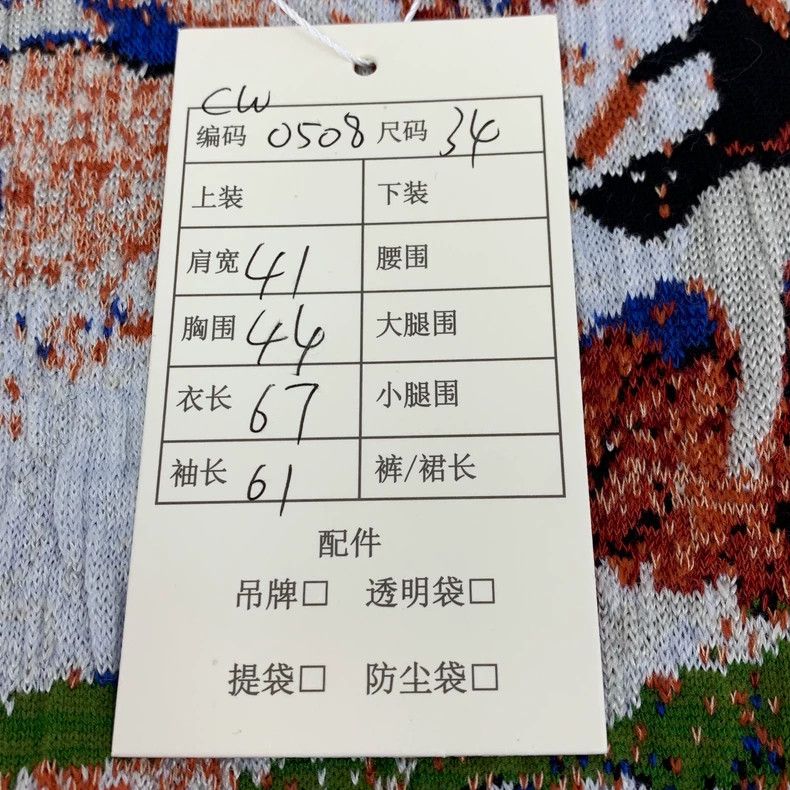 CW
编码 0508 尺码 34
上装 下装
肩宽 41 腰围
胸围 44 大腿围
衣长 67 小腿围
袖长 61 裤/裙长
配件
吊牌□ 透明袋□
提袋□ 防尘袋□